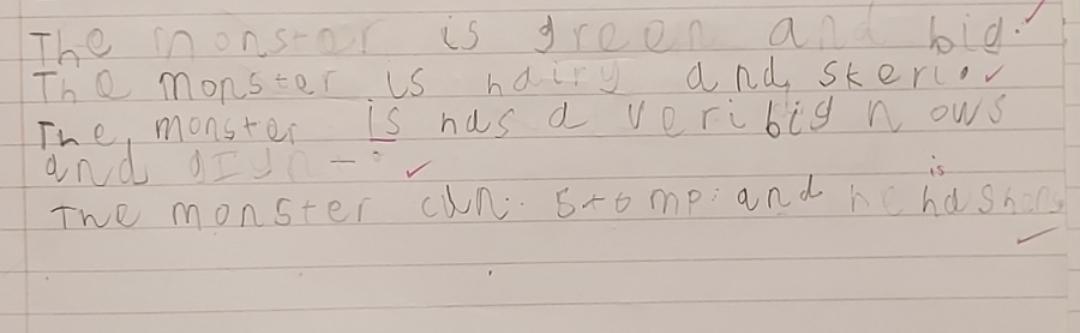 The monster is green and big.
The monster is hairy and skeri.
The monster is has a veri big nows
and
The monster can. stomp. and he has
is